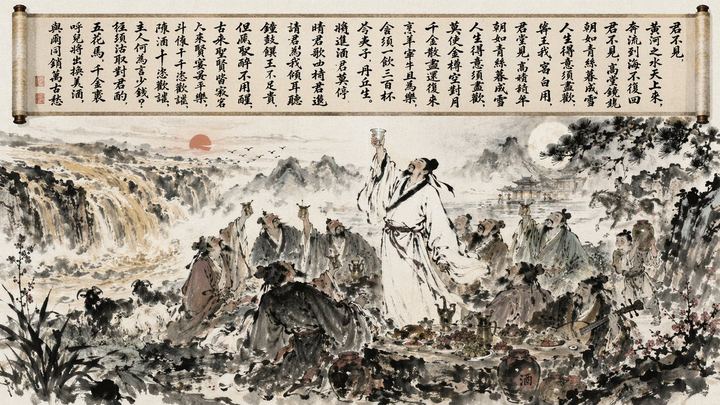 君不見,
黃河之水天上來,
奔流到海不復回
君不見,高堂鏡
朝如青絲暮成雪
人生得意須盡歡,
我,白用,
君堂見,高
朝如青絲暮成雪
人生得意須盡歡,
莫使金樽空對月
千金散盡還復來
烹羊宰牛且為樂,
會須一飲三百杯
岑夫子,丹丘生,
將進酒君莫停
君歌君進
請君為我傾耳聽
鐘鼓饌王不足貴,
但醉不用醒,
古來聖賢皆寂名
來賢宴平樂,
酒十千恣歡謔,
斗千千恣歡謔,
主人何為言少錢?
徑須沽取對君酌,
五花馬,千金裘
呼兒將出換美酒
與爾同銷萬古愁
酒